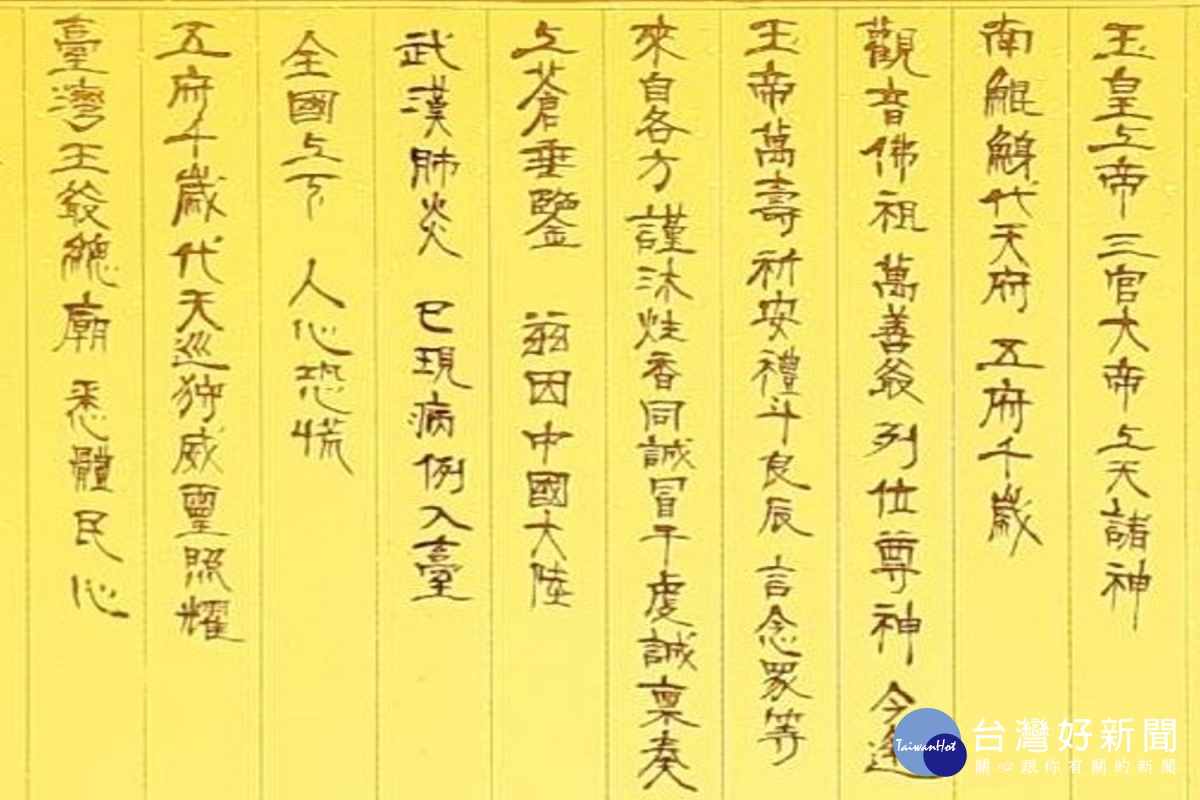 玉皇上帝 三官大帝 上天諸神
南鯤鯓代天府 五府千歲
觀音佛祖 萬善爺 列位尊神 今逢
玉帝萬壽祈安禮斗良辰 言念眾等
來自各方 謹沐炷香同誠冒干虔誠稟奏
上蒼垂鑒 茲因中國大陸
武漢肺炎 已現病例入臺
全國上下 人心恐慌
五府千歲代天巡狩威靈照耀
臺灣王爺總廟 悉體民心
TaiwanHot
台灣好新聞
關心跟你有關的新聞